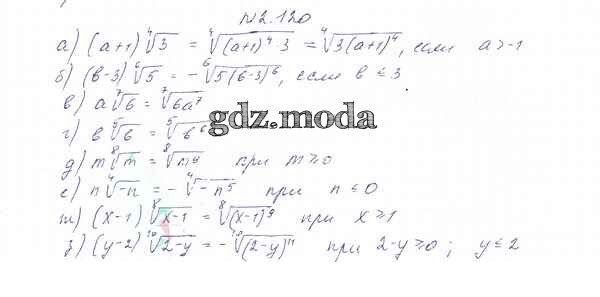 №2.120
а) (a+1) ⁴√3 = ⁴√(a+1)⁴·3 = ⁴√3(a+1)⁴, если a>-1
б) (в-3) ⁶√5 = - ⁶√5(в-3)⁶, если в ≤ 3
в) a ⁷√6 = ⁷√6a⁷
г) в ⁵√6 = ⁵√в⁶
gdz.moda
д) m ⁸√m = ⁸√m⁹ при m≥0
е) n ⁴√-n = - ⁴√-n⁵ при n ≤ 0
ж) (x-1) ⁸√x-1 = ⁸√(x-1)⁹ при x≥1
з) (y-2) ¹⁰√2-y = - ¹⁰√(2-y)¹¹ при 2-y≥0; y≤2